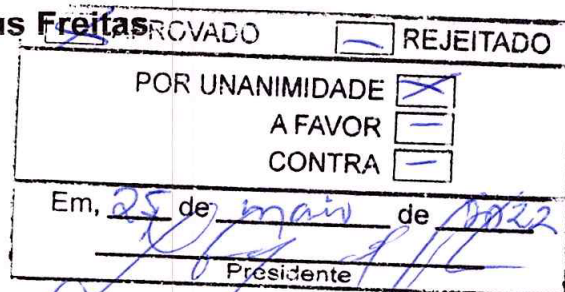 us Freitas
APROVADO REJEITADO
POR UNANIMIDADE
A FAVOR
CONTRA
Em, 25 de maio de 2022
Presidente